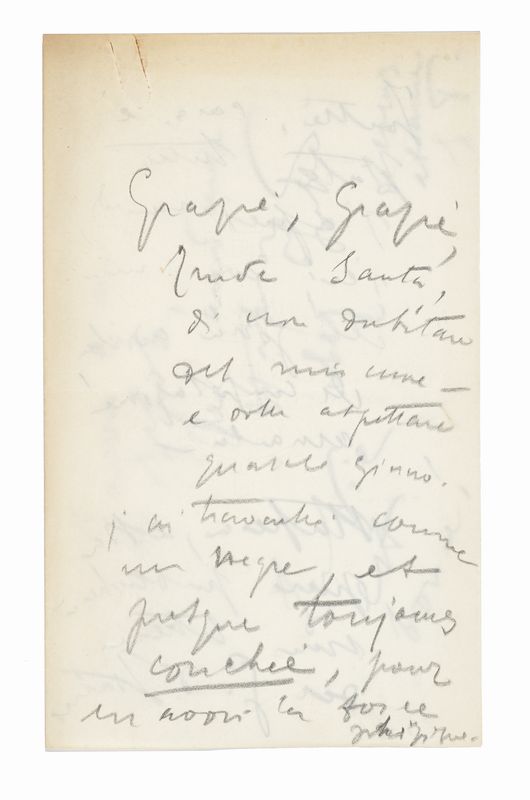 Grazie, Grazie,
Santa,
di non dubitare
del mio cuore –
e aspettare
qualche giorno.
j'ai travaillé comme
un negre, et
presque toujours
couchée, pour
en avoir la force
physique.